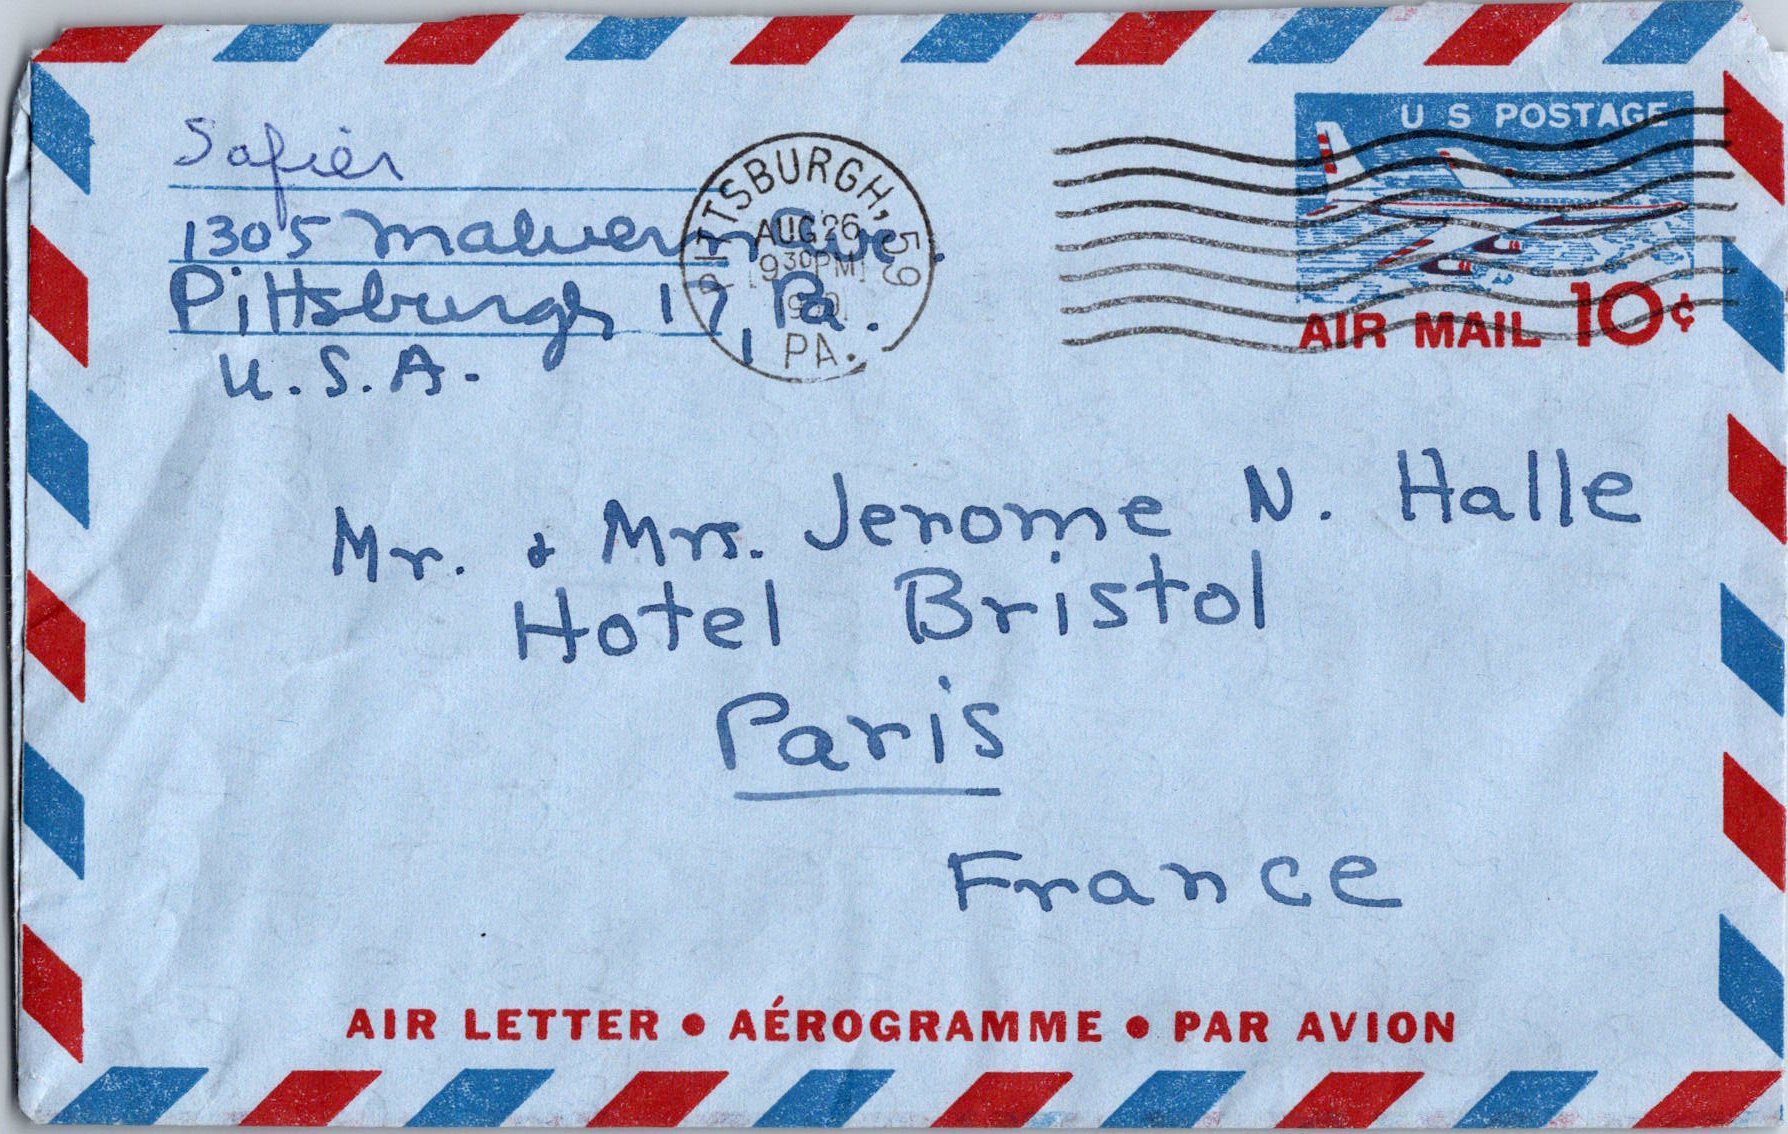 Safier
1305 Malvern Ave.
Pittsburgh 17, Pa.
U.S.A.
PITTSBURGH, PA.
AUG 26
9 30 PM
59
U S POSTAGE
AIR MAIL 10¢
Mr. & Mrs. Jerome N. Halle
Hotel Bristol
Paris
France
AIR LETTER • AÉROGRAMME • PAR AVION